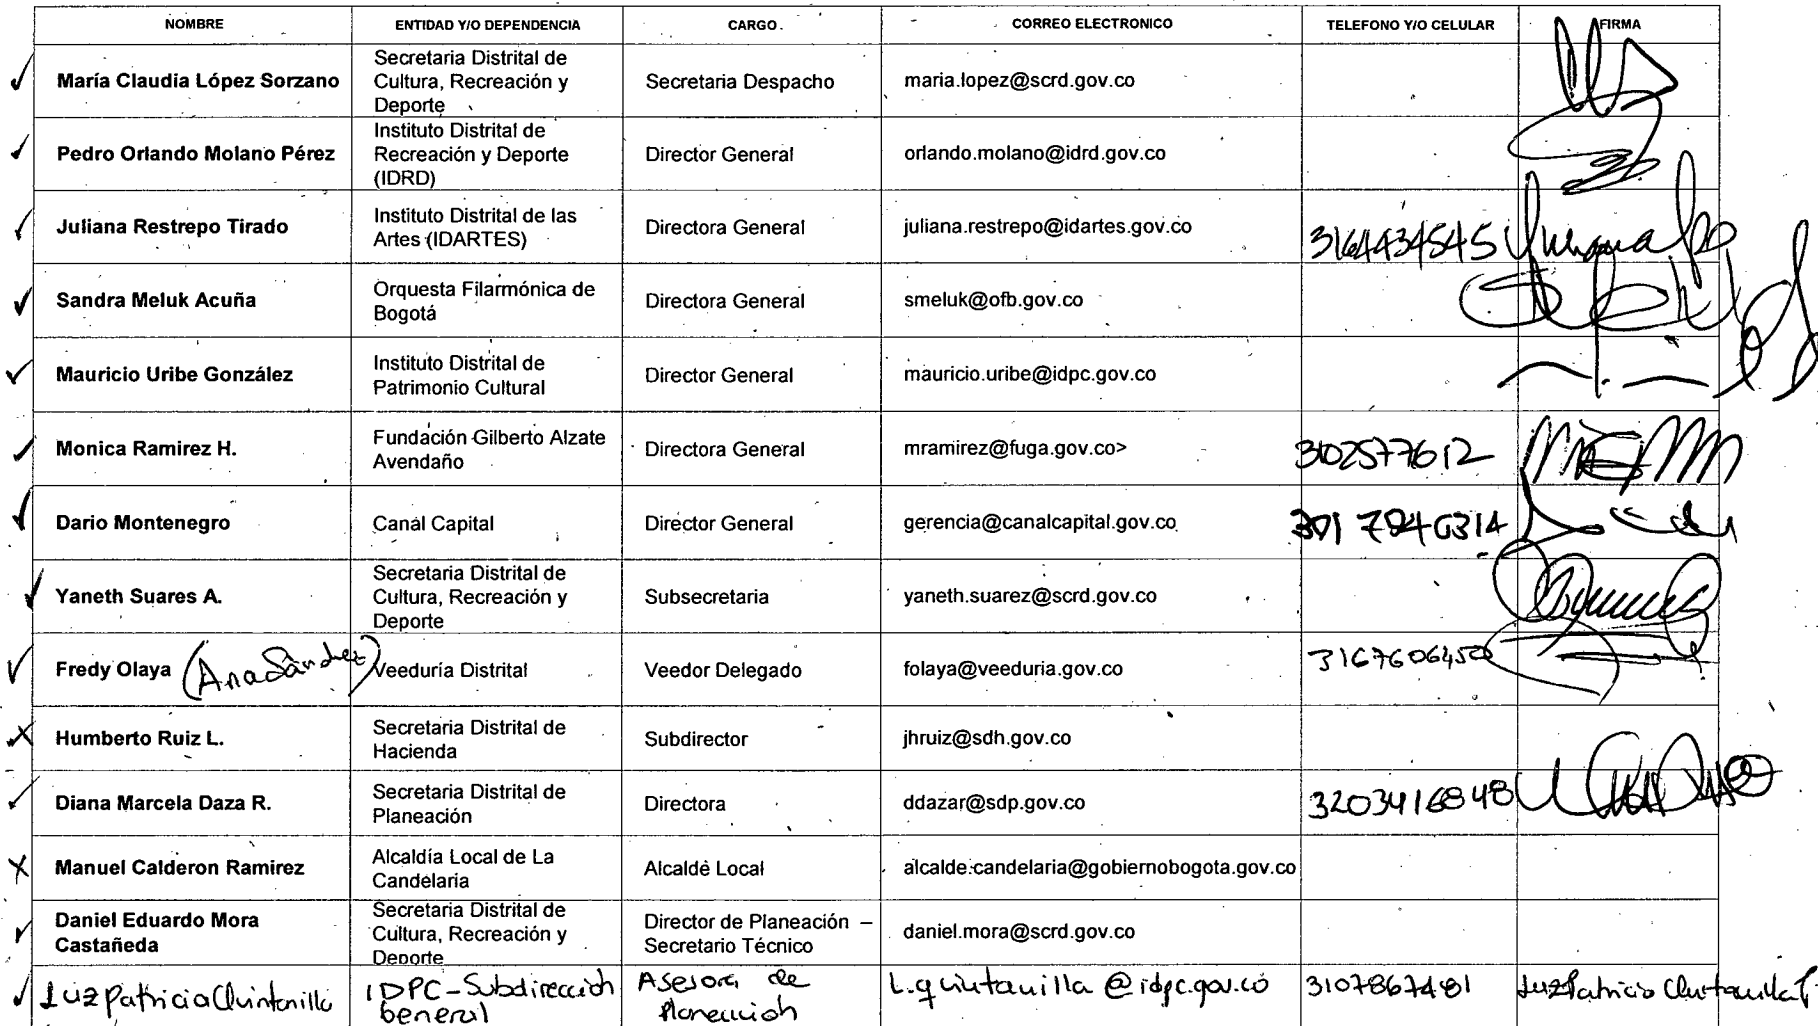 NOMBRE ENTIDAD Y/O DEPENDENCIA CARGO. CORREO ELECTRONICO TELEFONO Y/O CELULAR FIRMA
María Claudia López Sorzano Secretaria Distrital de Cultura, Recreación y Deporte Secretaria Despacho maria.lopez@scrd.gov.co
Pedro Orlando Molano Pérez Instituto Distrital de Recreación y Deporte (IDRD) Director General orlando.molano@idrd.gov.co
Juliana Restrepo Tirado Instituto Distrital de las Artes (IDARTES) Directora General juliana.restrepo@idartes.gov.co 3164434545
Sandra Meluk Acuña Orquesta Filarmónica de Bogotá Directora General smeluk@ofb.gov.co
Mauricio Uribe González Instituto Distrital de Patrimonio Cultural Director General mauricio.uribe@idpc.gov.co
Monica Ramirez H. Fundación Gilberto Alzate Avendaño Directora General mramirez@fuga.gov.co> 3102577612
Dario Montenegro Canal Capital Director General gerencia@canalcapital.gov.co
Yaneth Suares A. Secretaria Distrital de Cultura, Recreación y Deporte Subsecretaria yaneth.suarez@scrd.gov.co
Fredy Olaya (Ana Sánchez) Veeduría Distrital Veedor Delegado folaya@veeduria.gov.co 3167606450
Humberto Ruiz L. Secretaria Distrital de Hacienda Subdirector jhruiz@sdh.gov.co
Diana Marcela Daza R. Secretaria Distrital de Planeación Directora ddazar@sdp.gov.co 3203416848
Manuel Calderon Ramirez Alcaldía Local de La Candelaria Alcalde Local alcalde.candelaria@gobiernobogota.gov.co
Daniel Eduardo Mora Castañeda Secretaria Distrital de Cultura, Recreación y Deporte Director de Planeación – Secretario Técnico daniel.mora@scrd.gov.co
Luz Patricia Quintanilla IDPC-Subdirección General Asesora de Planeación L.quintanilla@idpc.gov.co 3107867481 Luz Patricia Quintanilla P.